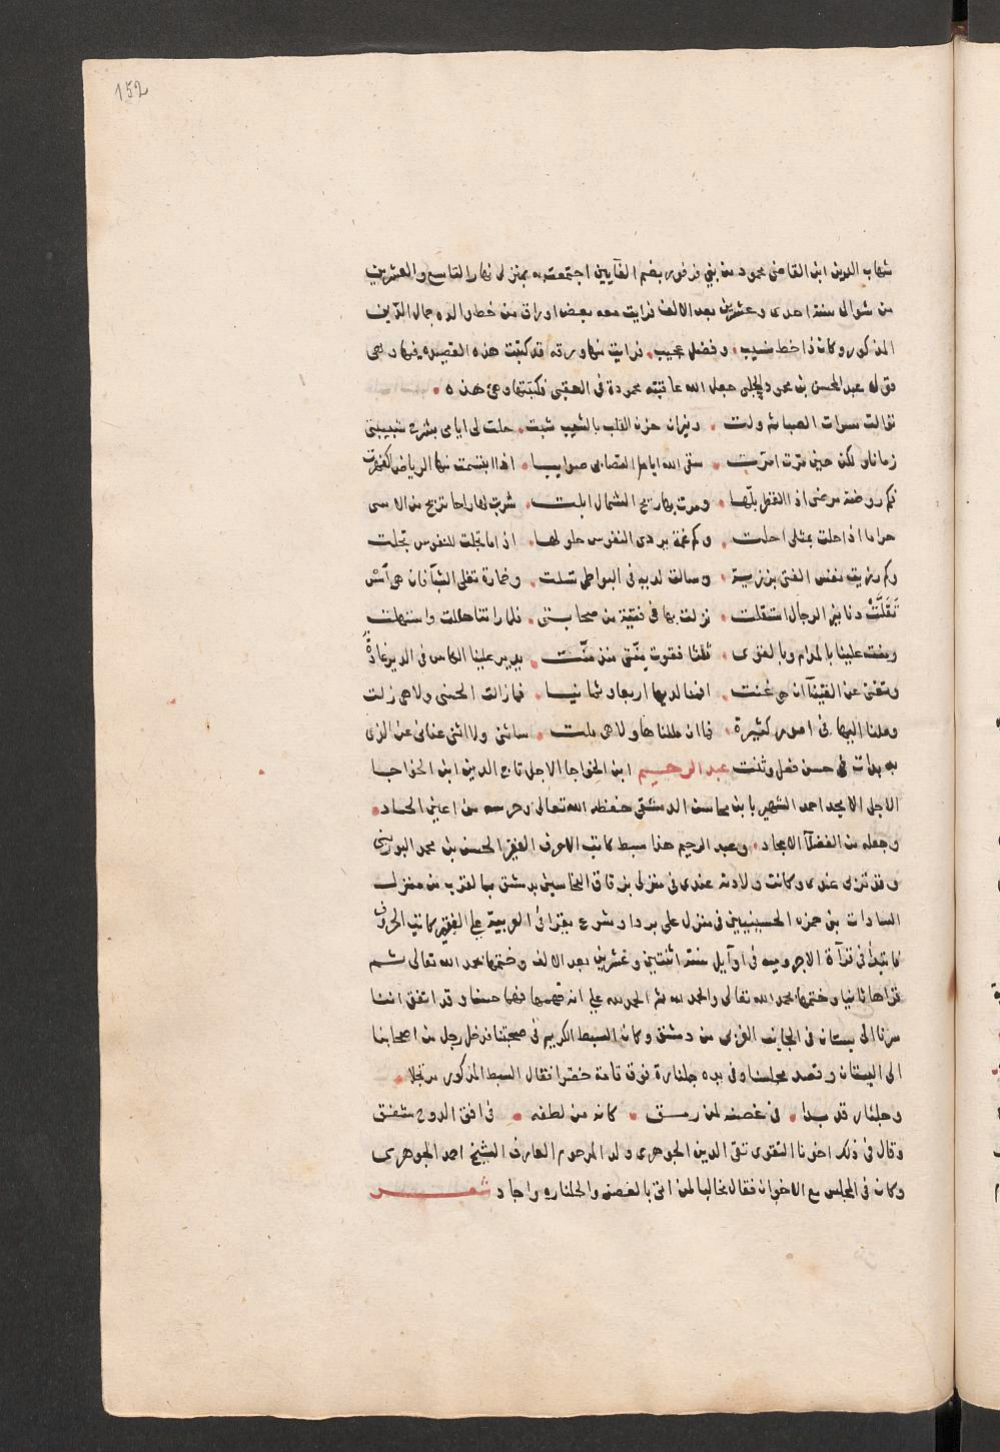 152
شهاب الدين ابن القاضي محمود من بني فرفور بضم الفايين اجتمعت به بمنزلي نهار التاسع والعشرين
من شوال سنة احدى وعشرين بعد الالف فرايت معه بعض اوراق من خط والده جمال الدين
المذكور وكان ذا خط نسيب، وفضل عجيب، فرايت منها ورقه قد كتبت هذه القصيده فيها وهي
قوله عبد المحسن بن محمود الحلبي جعل الله عاقبته محمودة في العقبى فكتبتها وهي هذه ه
توالت مسرات الصبا ثم ولت ، ونيران حزن القلب بالشيب شبت، حلت لي ايامي بشرخ شبيبتي
زمانا ولكن حين مرت امرت ، سقى الله ايام التصابي صوايبا، اذا ابتسمت منها الرياض
فكم روضة مرعى اذا القطر بلها ، ومرت بها ريح الشمال ابلت، شربت لها راحا تريح من الاسى
حراما اذا حلت بمثلي احلت ، وكم غمة يردي النفوس حلولها، اذا ما تجلت للنفوس تجلت
وكم نفس الفتى برزية ، وسالت لديه في البواطي تسلت ، وخمارة تغلي الشبا
ثقلت دنانير الرجال استقلت ، نزلت بها في فتية من صحابتي ، فلما راتنا هللت واستهلت
ومنت علينا بالمدام وبالقوى ، فقلنا فقوت منتي منذ منت ، يدير علينا الكاس في الدير غادة
وتغني عن القينات ان هي غنت ، اقمنا لديها اربعا وثمانيا ، فما زالت الحسنى ولا هي زلت
وملنا اليها في امور كثيرة ، فما ان مللناها ولا هي ملت ، ساثني ولا اثني عناني عن الذي
به بدات في حسن فعل وثنت عبد الرحيم ابن الخواجا الاجل تاج الدين ابن الخواجا
الاجل الامجد احمد الشهير بابن محاسن الدمشقي حفظه الله تعالى وحرسه من اعين الحساد
وجعله من الفضلآ الامجاد، وعبد الرحيم هذا سبط كاتب الاحرف الفقير الحسن بن محمد البوريني
وقد تربى عندي وكانت ولادته عندي في منزلي بزقاق النحاسين بدمشق بالقرب من منزل
السادات بني حمزه الحسينيين في منزل على بردا وشرع يقرا في العربية على الفقير كاتب الحروف
فابتدا في قرآة الاجروميه في اوآيل سنة اثنتين وعشرين بعد الالف وختمها بحمد الله تعالى ثم
قراها ثانيا وختمها بحمد الله تعالى والحمد لله ثم الحمد لله على انه فهمها فهما حسنا وقد اتفق اننا
سرنا الى بستان في الجانب الغربي من دمشق وكان السبط الكريم في صحبتنا فدخل رجل من اصحابنا
الى البستان وقصد مجلسنا وفي يده جلنارة فوق قامة خضرا فقال السبط المذكور مرتجلا
وجلنار قد بدا ، في غصنه لمن رمق ، كانه من لطفه ، في افق الدوح شفق
وقال في ذلك اخونا التقوى تقي الدين الجوهري ولد المرحوم العارف الشيخ احمد الجوهري
وكان في المجلس مع الاخوان فقال مخاطبا لمن اتى بالغصن والجلناره واجاد شعر